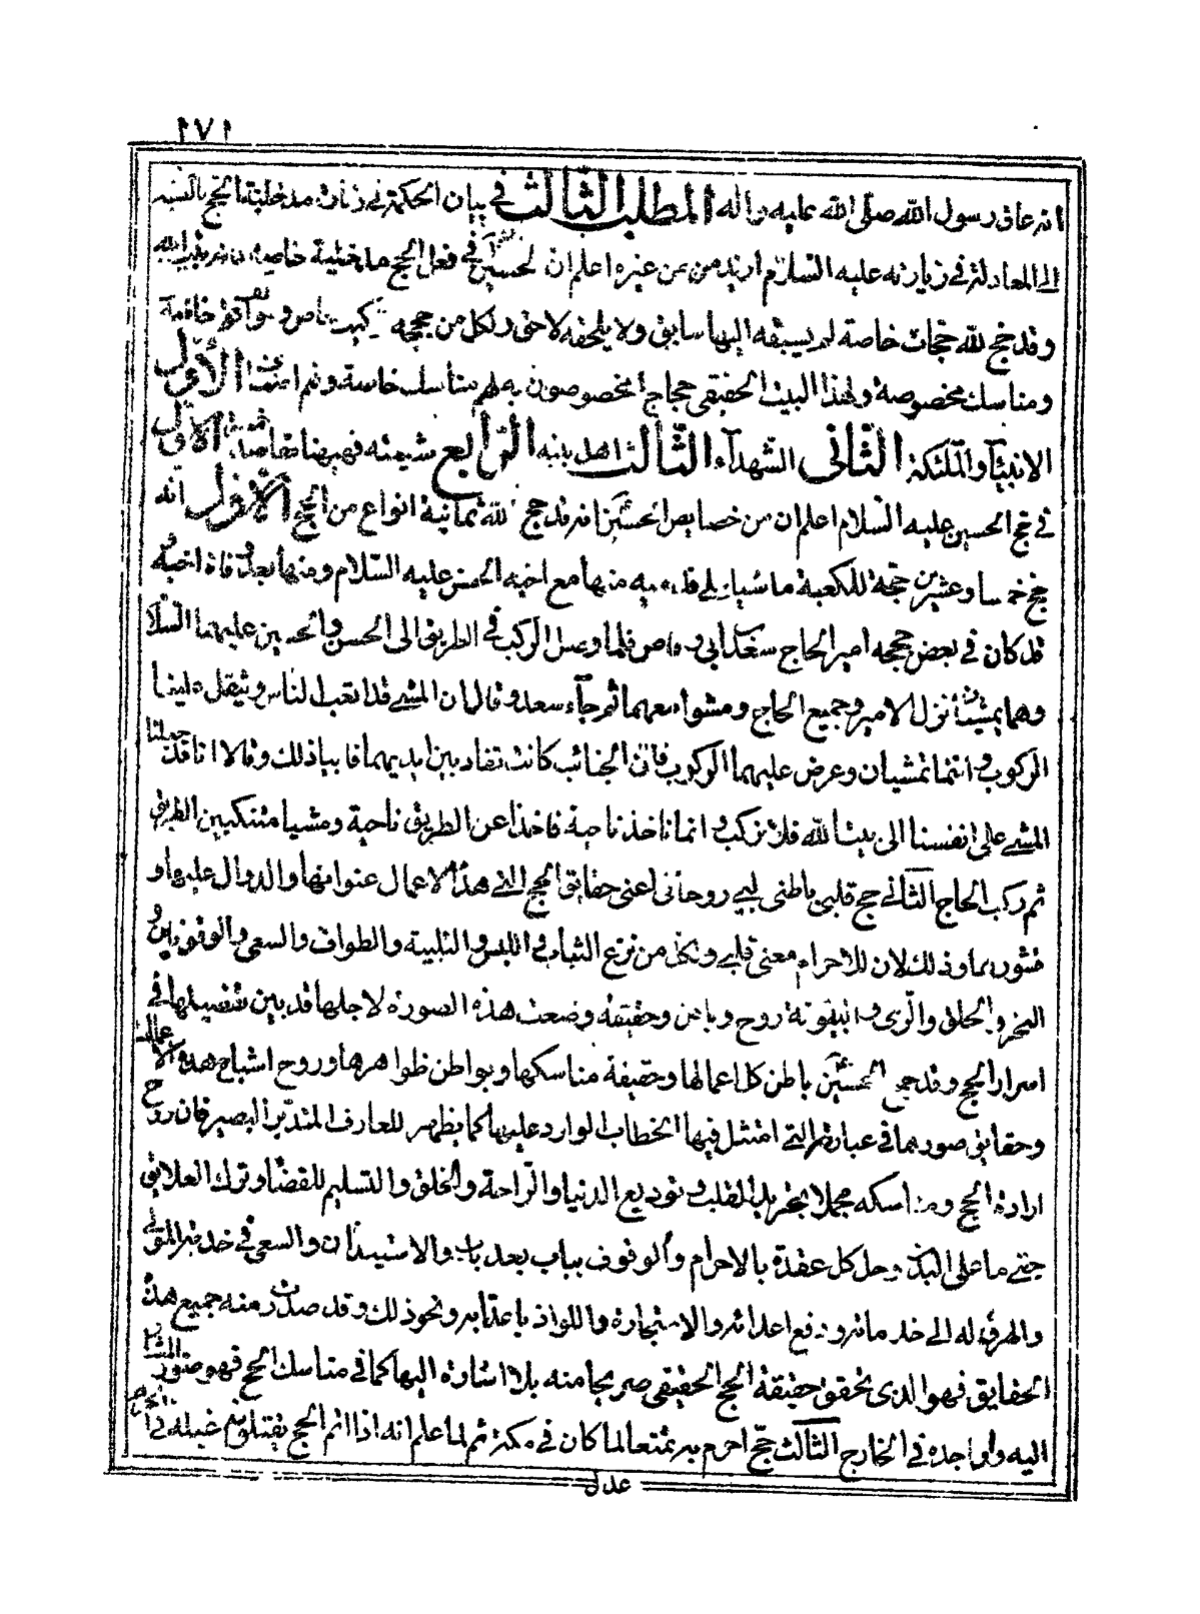 ١٧١
انه عاق رسول الله صلى الله عليه واله المطلب الثالث في بيان الحكمة في زيادة الحج بالنسبة
الى المعادلة في زيارته عليه السلام ازيد من من غيره اعلم ان للحسين في فعل الحج خاصية
وقد حج لله حجات خاصة لم يسبقه اليها سابق ولا يلحقه لاحق ولكل من حججه خاص و خاصة
ومناسك مخصوصة ولهذا البيت الحقيقي حجاج مخصوصون به لهم مناسك خاصة وهم اصناف الأول
الانبياء والملئكة الثاني الشهداء الثالث اهل بيته الرابع شيعته فهيهنا مقاصد الاول
في حج الحسين عليه السلام اعلم ان من خصايص الحسين انه قد حج لله ثمانية انواع من الحج الأول انه
حج خمسا وعشرين حجة للكعبة ماشيا على قدميه منها مع اخيه الحسن عليه السلام ومنها بعد وفاة اخيه و
قد كان في بعض حججه امير الحاج سعد بن ابي وقاص فلما وصل الركب في الطريق الى الحسن والحسين عليهما السلام
وهما يمشيان نزل الامير وجميع الحاج ومشوا معهما ثم جاء سعد وقال ان المشي قد اتعب الناس ويثقل علينا
الركوب وانتما تمشيان وعرض عليهما الركوب فان الجنائب كانت تقاد بين ايديهما فابيا ذلك وقالا انا قد جعلنا
المشي على انفسنا الى بيت الله فلا نركب وانما ناخذ ناحية فاخذا عن الطريق ناحية ومشيا متنكبين الطريق
ثم ركب الحاج الثاني حج قلبي باطني لبي روحاني اعني حقايق الحج التي هذه الاعمال عنوانها والدوال عليها و
قشور لها وذلك لان للاحرام معنى قلبي ولكل من نزع الثياب واللبس والتلبية والطواف والسعي والوقوفين و
النحر والحلق والرمي والبيتوتة روح وباطن وحقيقة وضعت هذه الصورة لاجلها قد بين تفصيلها في
اسرار الحج وقد حج الحسين باطن كل اعمالها وحقيقة مناسكها وبواطن ظواهرها وروح اشباح هذه الاعمال
وحقايق صورها في عباداته التي امتثل فيها الخطاب الوارد عليها كما يظهر للعارف المتدبر البصير فان روح
ارادة الحج ومناسكه مجملا تجريد القلب وتوديع الدنيا والراحة والخلق والتسليم للقضاء وترك العلايق
حتى ما على البدن وحل كل عقدة بالاحرام والوقوف بباب بعد باب والاستيذان والسعي في خدمة المولى
والهرولة له الى خدماته ودفع اعدائه والاستجارة واللواذ باعتابه ونحو ذلك وقد صدرت منه جميع هذه
الحقايق فهو الذي تحقق حقيقة الحج الحقيقي صريحا منه بلا اشارة اليها كما في مناسك الحج فهو صور المشار
اليه واواجده في الخارج الثالث حج احرم به تمتعا لما كان في مكة ثم لما علم انه اذا اتم الحج يقتلونه غيلة في الحرم
عدل